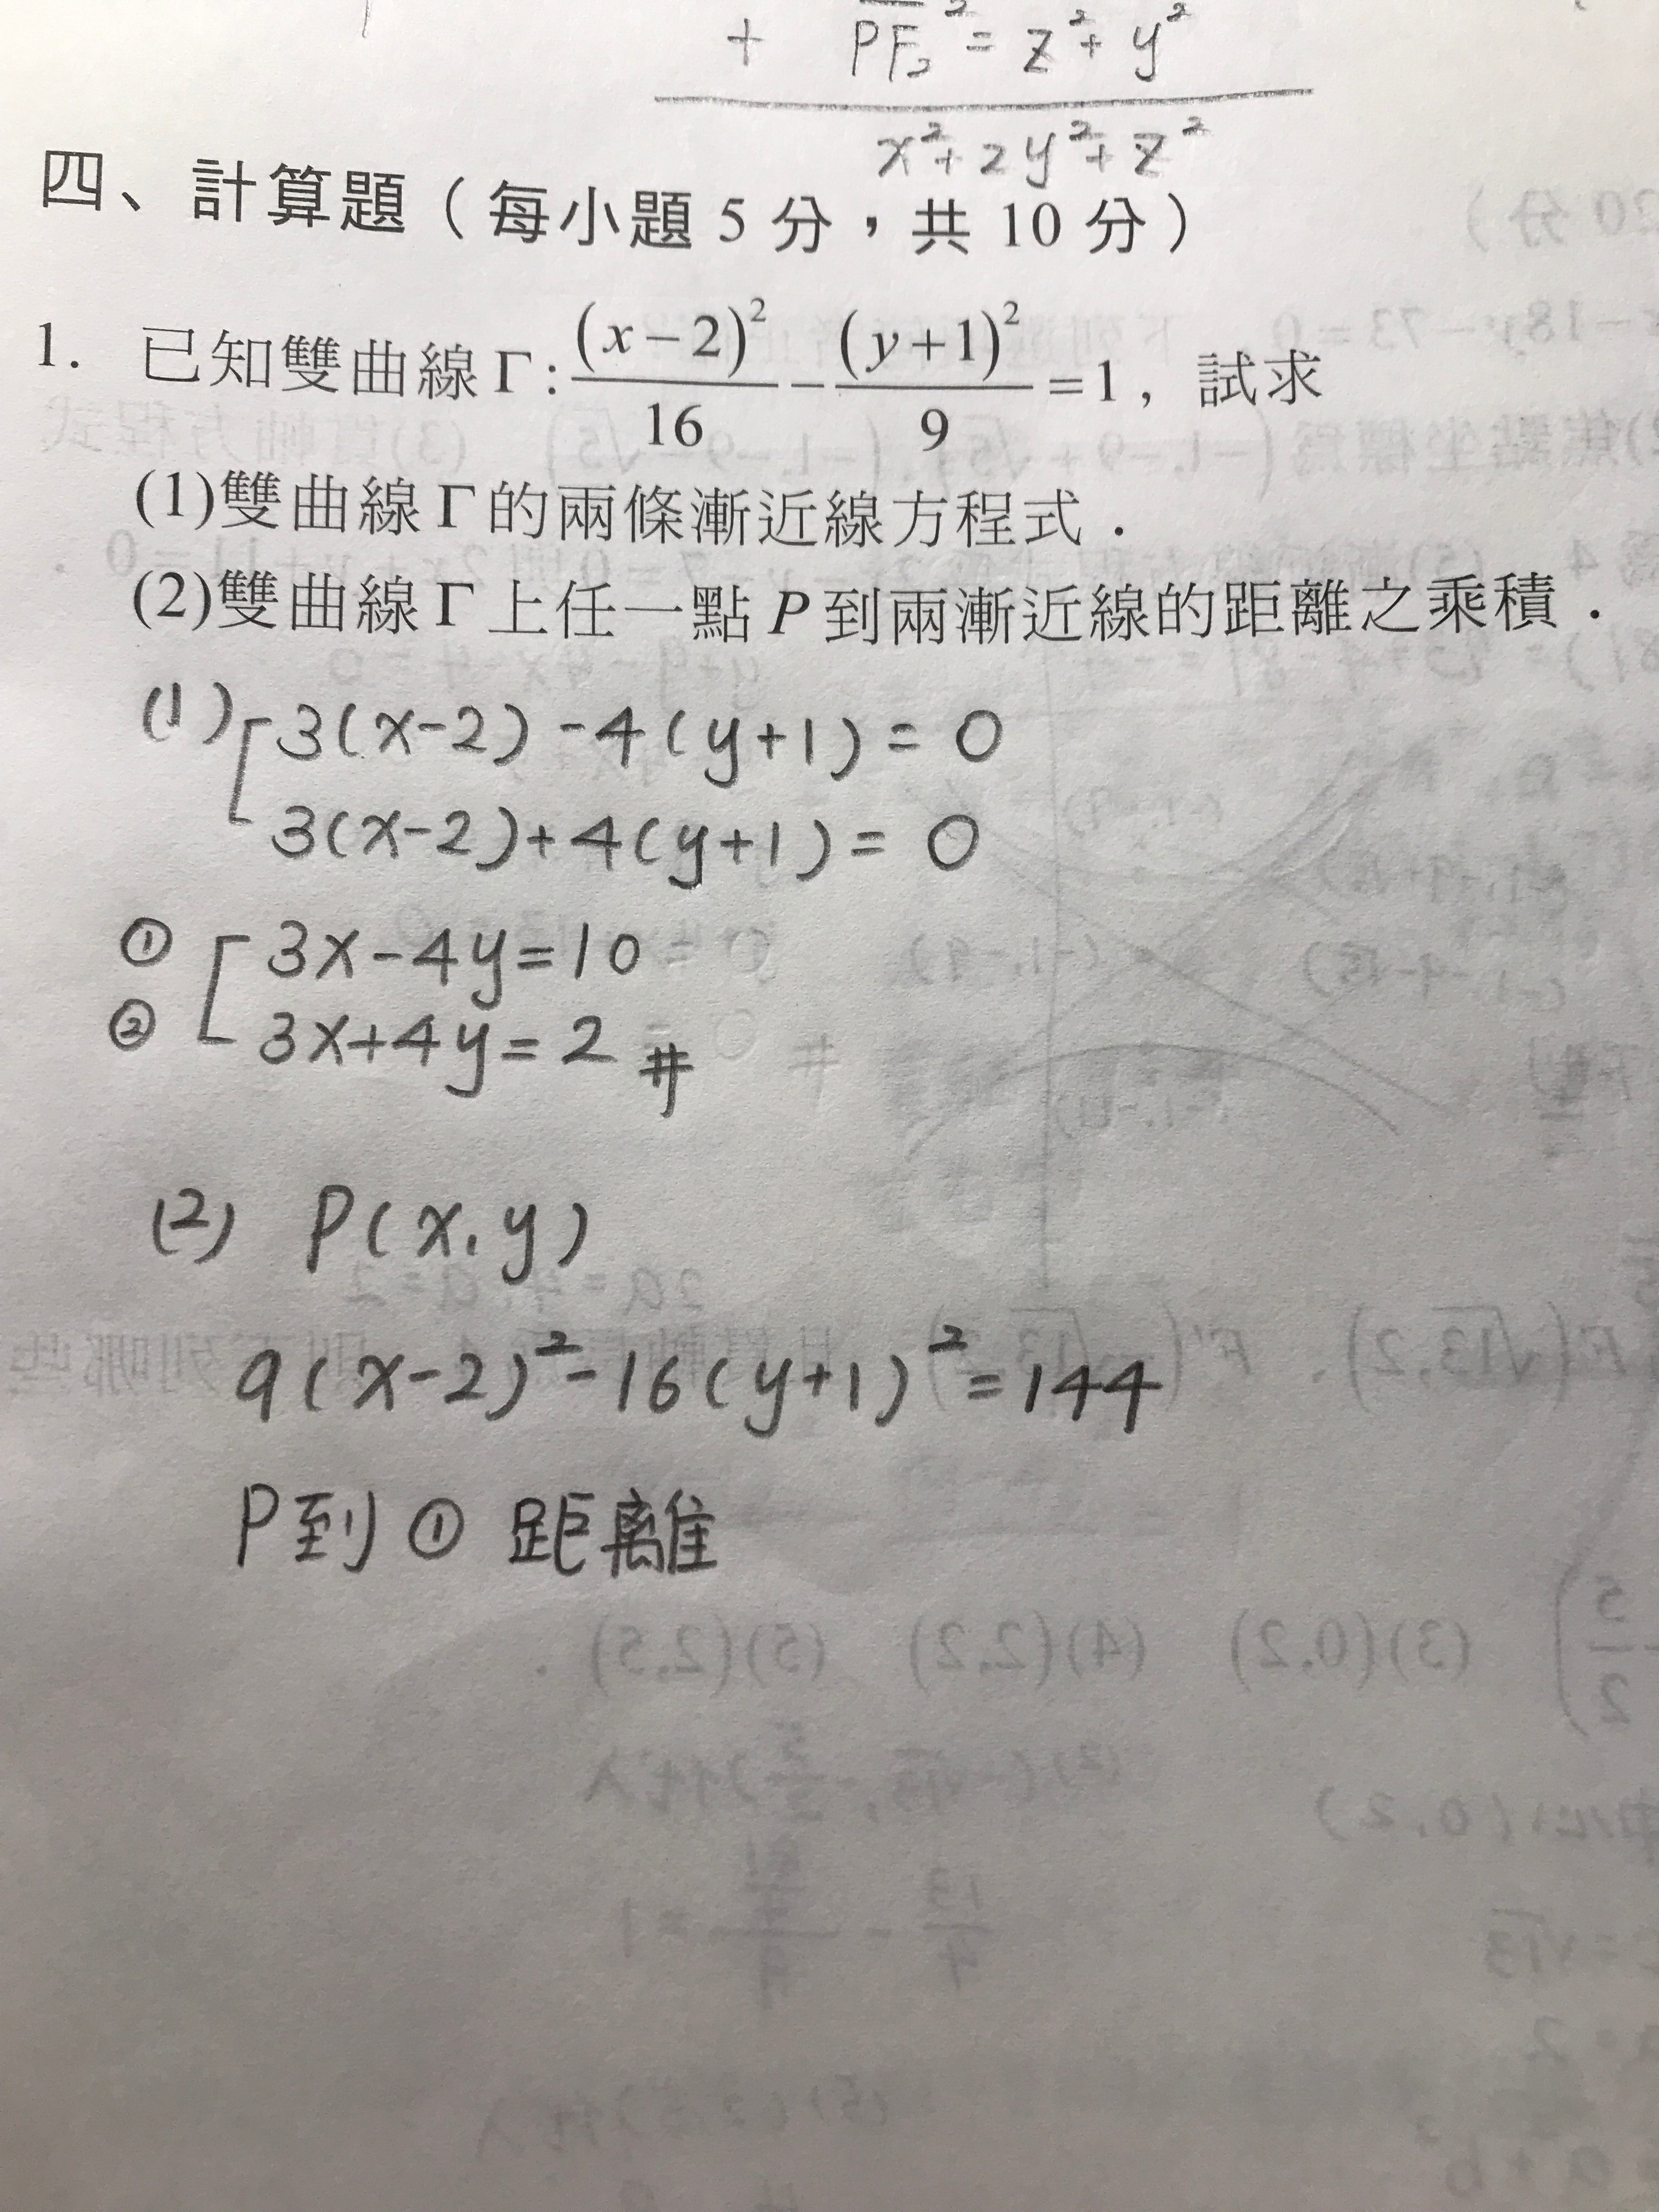 + PF₂² = z² + y²
x² + 2y² + z²
四、計算題（每小題 5 分，共 10 分）
1. 已知雙曲線 Γ: (x−2)²/16 − (y+1)²/9 = 1，試求
(1)雙曲線 Γ 的兩條漸近線方程式．
(2)雙曲線 Γ 上任一點 P 到兩漸近線的距離之乘積．
(1) 3(x-2) -4(y+1) = 0
3(x-2)+4(y+1) = 0
① 3x-4y=10
② 3x+4y=2 #
(2) P(x,y)
9(x-2)²-16(y+1)²=144
P到①距離